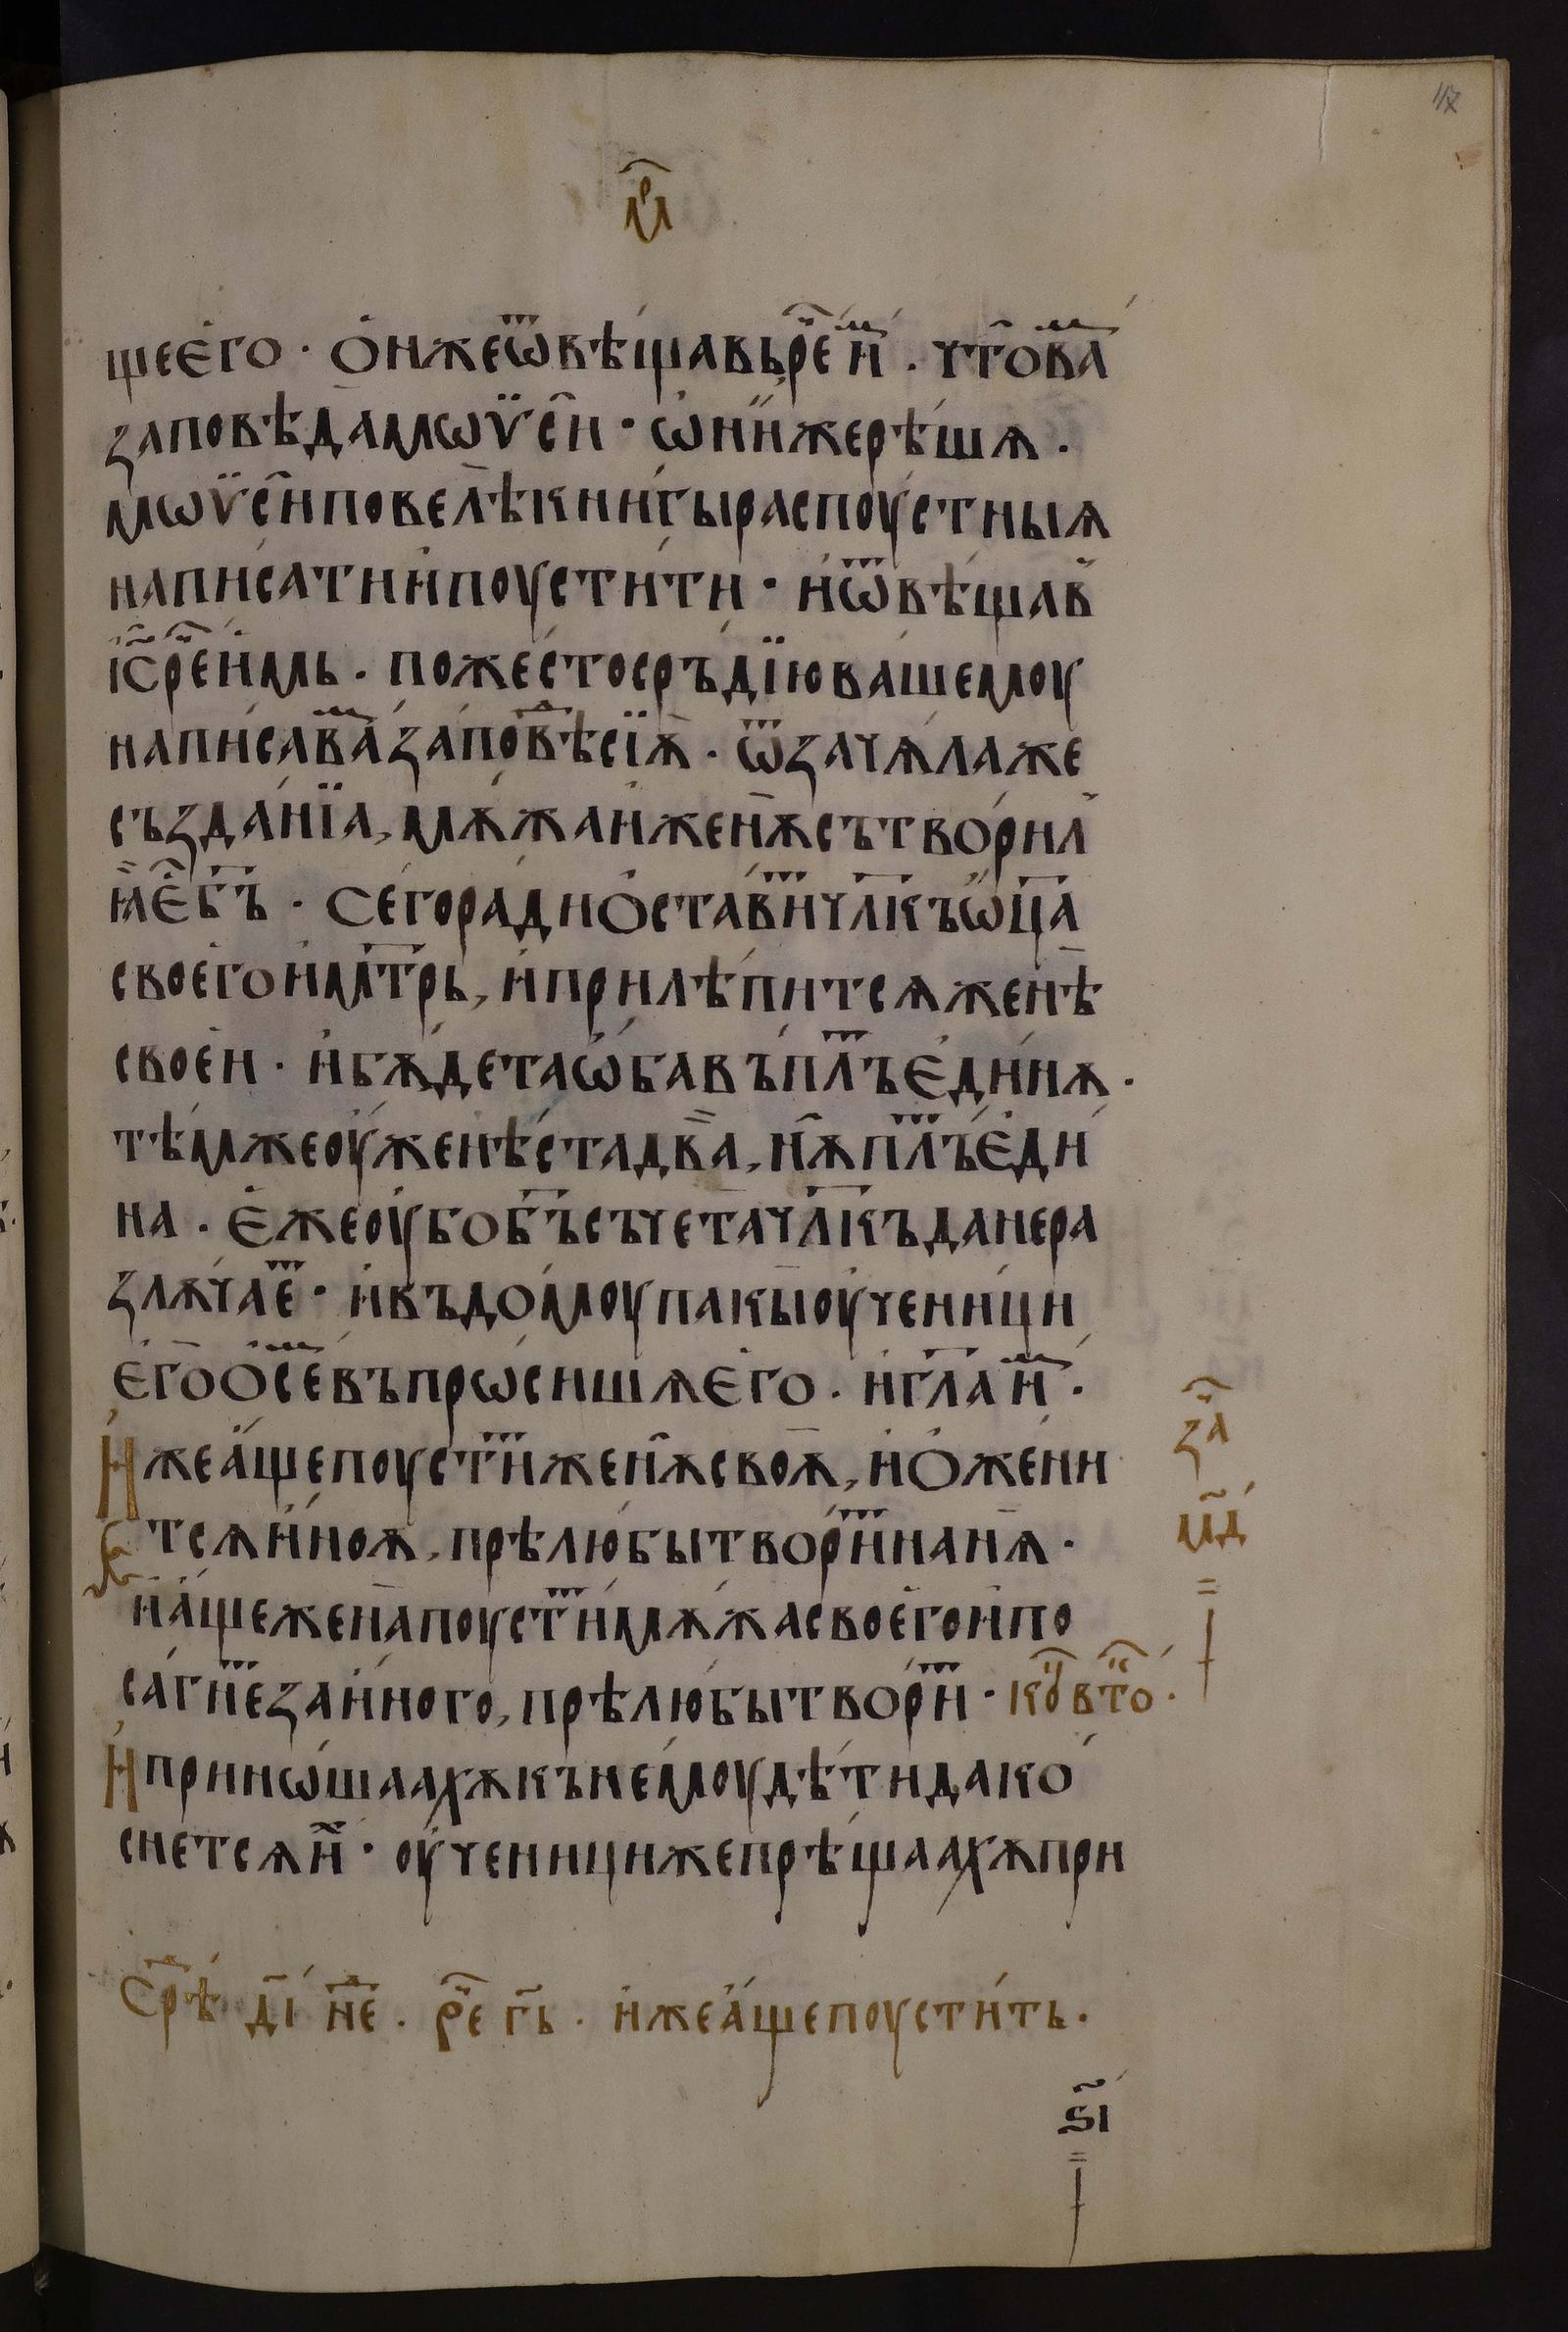 мр҃
щеего · онжеѿвѣщавьрⷱ҇еиⷨ · чтⷪ҇оваⷨ
заповѣдамѡѵ̈сⷭ҇и · ѡниижерѣшѧ ·
мѡѵ̈сⷭ҇иповелѣкнигыраспоустныѧ
написатиипоустити · иѿвѣщав
іс҃рⷱ҇еимь · пожестосръдїювашемоу
написаваⷨзаповⷣѣсїѫ · ѿзачѧлаже
създанїа, мѫжаиженѫсътворил
иаⷭ҇е҃бъ҃ · Сегорадиоставиⷮчл҃къѡц҃а
своегоимт҃рь, иприлѣпитсѧженѣ
своеи · ибѫдетаѡбавъплⷮъединѫ ·
тѣмжеоуженѣстадва, нѫплⷮъеди
на · ежеоубобъ҃съчетачл҃къданера
злѫчаеⷮ · ивъдомоупакыоученици
егоосеⷨвъпрѡсишѧего · игл҃аиⷨ ·
Ижеащепоустиⷮженѫсвоѫ, иожени
тсѧиноѫ, прѣлюбытвориⷮнанѫ ·
иащеженапоустиⷮмѫжасвоегоипо
сагнеⷮзаиного, прѣлюбытвориⷮ · коⷰ҇втоⷬ҇ ·
Ипринѡшаахѫкънемоудѣтидако
снетсѧиⷯ · оученицижепрѣщаахѫпри
заⷱ҇
мд҃
Срⷣѣ ді҃ неⷣ · рⷱ҇е гь҃ · ижеащепоустить ·
ѕі҃